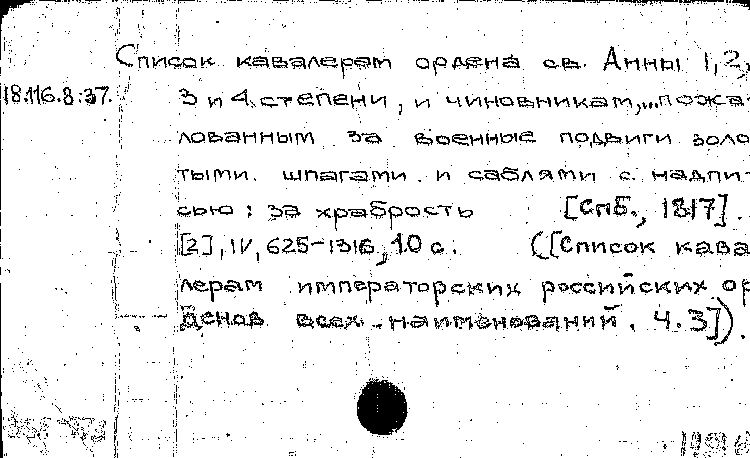 Список кавалерам ордена св. Анны 1, 2,
18.116.8:37.
3 и 4 степени, и чиновникам,...пожа-
лованным за военные подвиги золо
тыми шпагами и саблями с надпи-
сью: за храбрость [Спб., 1817].
[2], IV, 625-1316, 10 с. ([Список кава
лерам императорских российских ор
денов всех наименований. Ч. 3]).